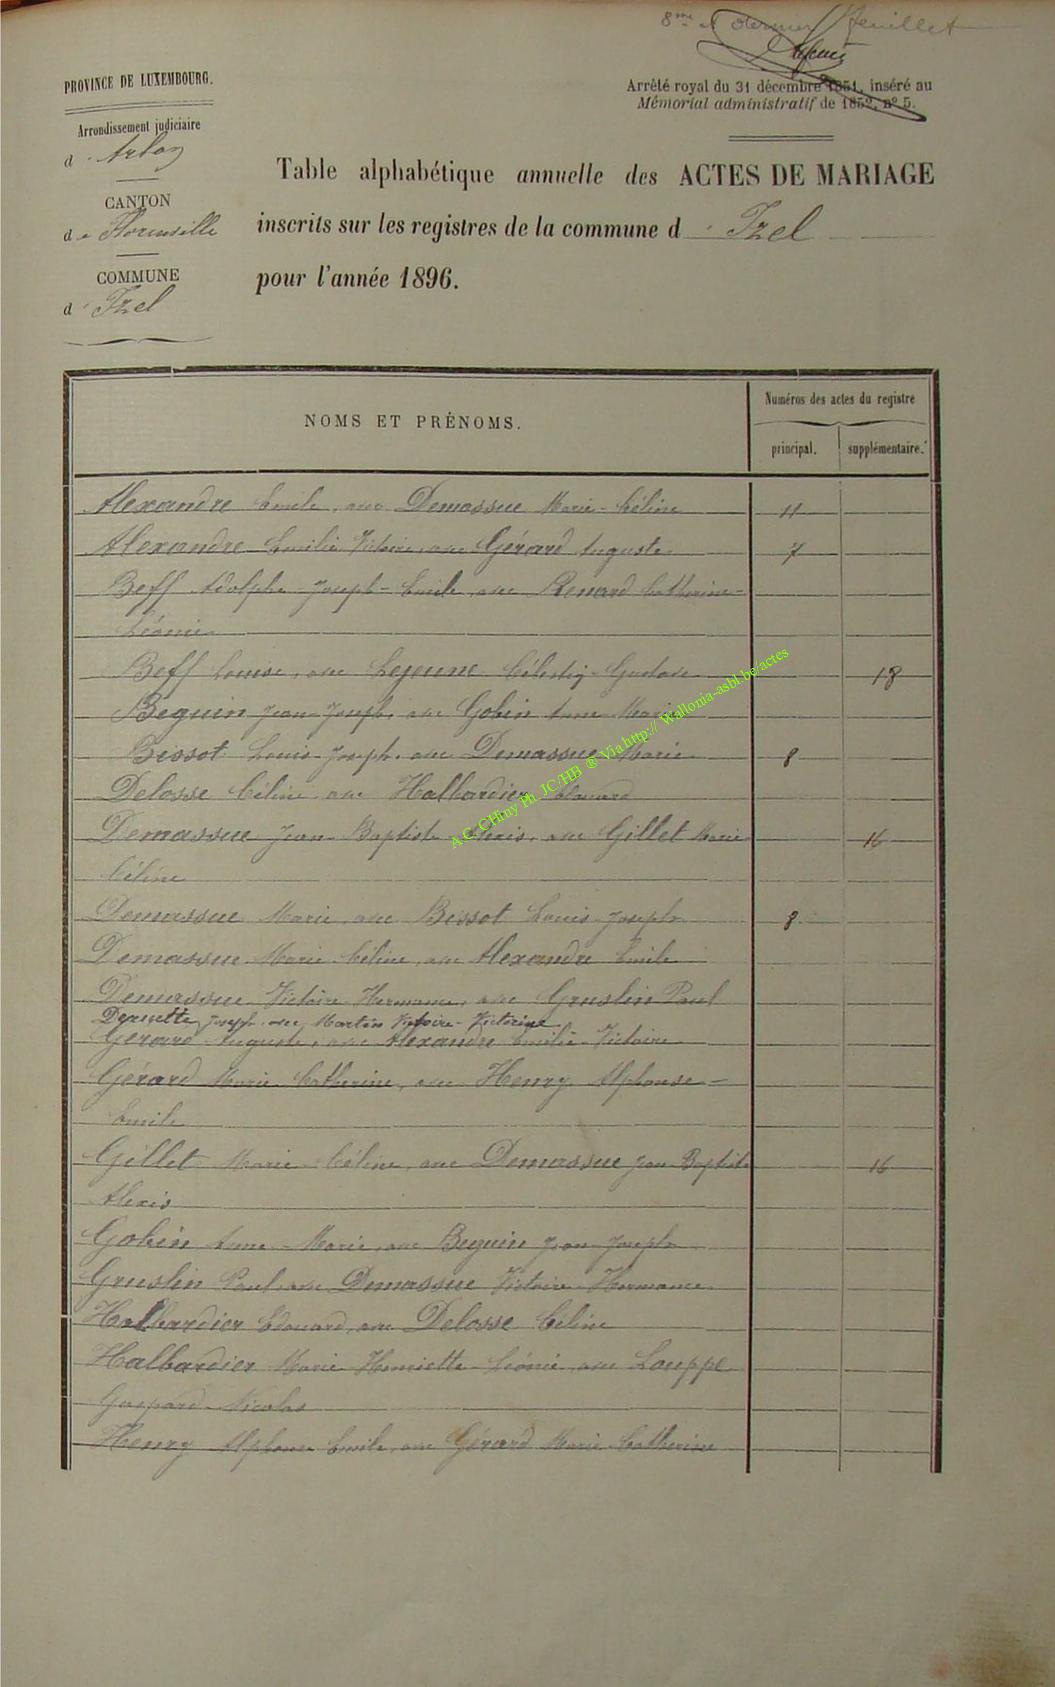 8me et dernier feuillet
PROVINCE DE LUXEMBOURG.
Arrondissement judiciaire
d'Arlon
CANTON
de Florenville
COMMUNE
d'Izel
Arrêté royal du 31 décembre 1851, inséré au
Mémorial administratif de 1852, no 5.
Table alphabétique annuelle des ACTES DE MARIAGE
inscrits sur les registres de la commune d'Izel
pour l'année 1896.
NOMS ET PRÉNOMS.
Numéros des actes du registre
principal. supplémentaire.
Alexandre Emile, avec Demassue Marie-Céline 11
Alexandre Emilie Victoire, avec Gérard Auguste 7
Beff Adolphe-Joseph-Emile, avec Renard Catherine-
Léonie
Beff Louise, avec Lejeune Célestin-Gustave 18
Beguin Jean-Joseph, avec Gobin Anne-Marie
Bissot Louis-Joseph, avec Demassue Marie 8
Delosse Céline, avec Halbardier Edouard
Demassue Jean-Baptiste Alexis, avec Gillet Marie 16
Céline
Demassue Marie, avec Bissot Louis-Joseph 8
Demassue Marie-Céline, avec Alexandre Emile
Demassue Victoire-Hermance, avec Gruslin Paul
Joseph, avec Martin Victoire-Victorine
Gérard Auguste, avec Alexandre Emilie-Victoire
Gérard Marie Catherine, avec Henry Alphonse-
Emile
Gillet Marie-Céline, avec Demassue Jean-Baptiste 16
Alexis
Gobin Anne-Marie, avec Beguin Jean-Joseph
Gruslin Paul, avec Demassue Victoire-Hermance
Halbardier Edouard, avec Delosse Céline
Halbardier Marie-Henriette-Léonie, avec Louppe
Gaspard-Nicolas
Henry Alphonse Emile, avec Gérard Marie Catherine
A.C. CHiny Ph. JC/HB ® Via http:// Wallonia-asbl.be/actes